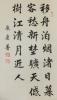 移舟泊烟渚日暮
客愁新野曠天低
樹江清月近人